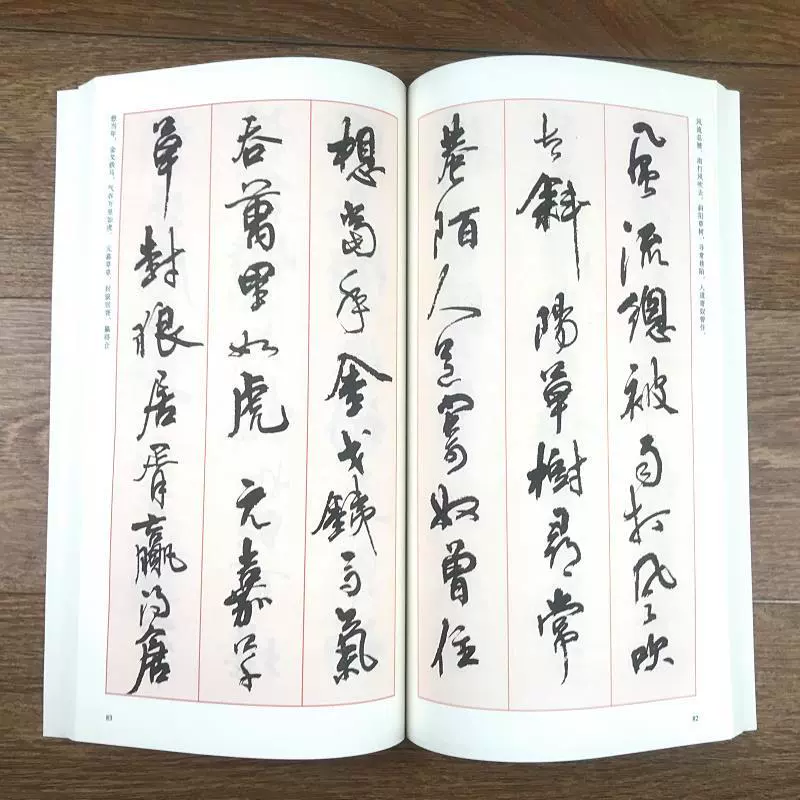 风流总被，雨打风吹去。斜阳草树，寻常巷陌，人道寄奴曾住。
風流總被雨打風吹
去斜陽草樹尋常
巷陌人道寄奴曾住
82
想當年金戈鐵馬氣
吞萬里如虎元嘉草
草封狼居胥贏得倉
想当年，金戈铁马，气吞万里如虎。元嘉草草，封狼居胥，赢得仓
83